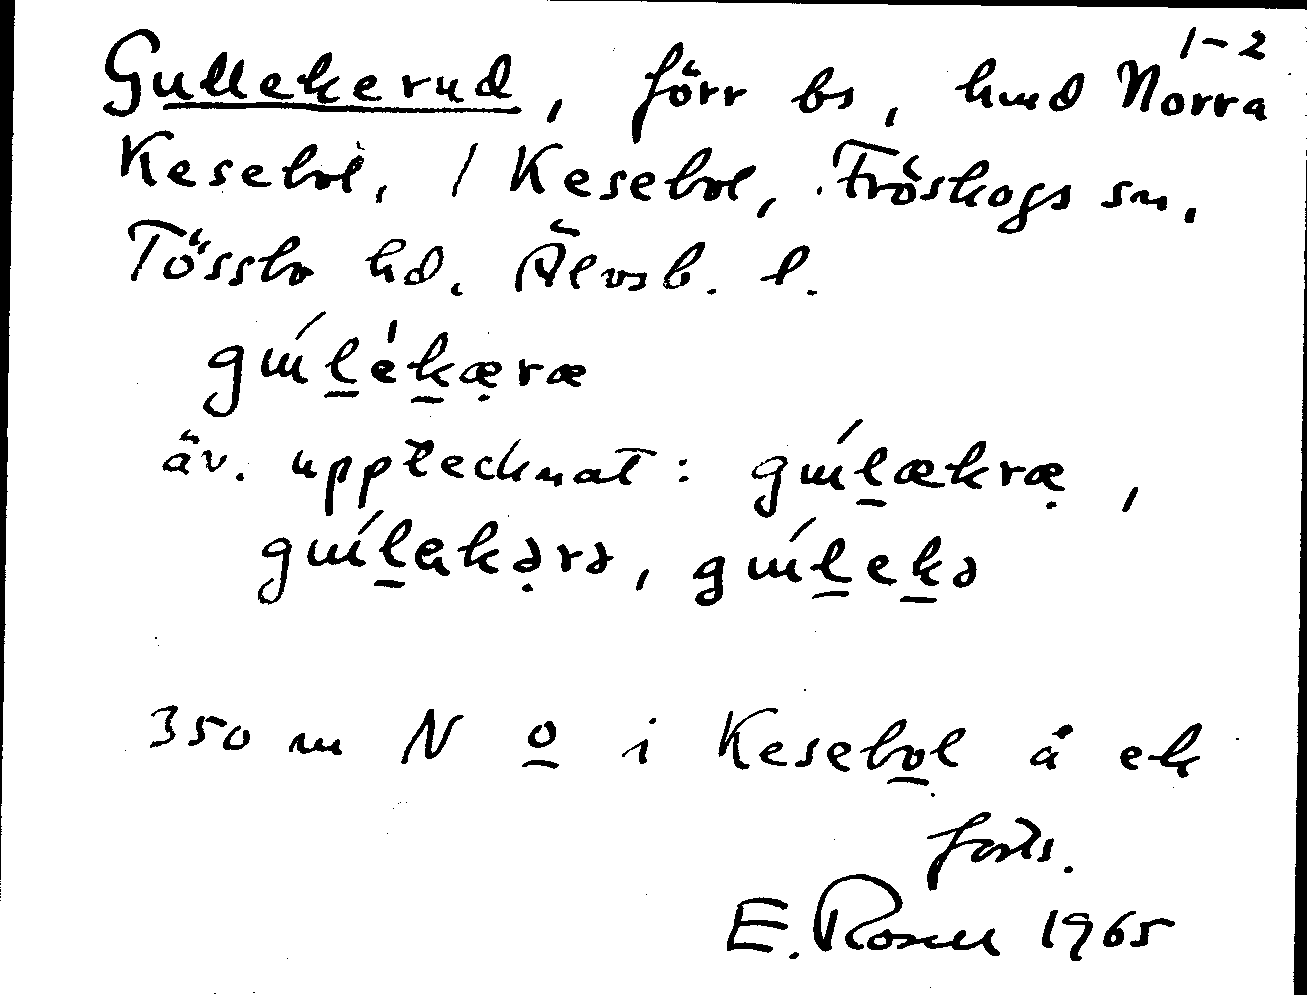 1-2
Gullekerud, förr bs, hmd Norra
Kesebol, / Kesebol, Fröskogs sn,
Tössbo hd. Älvsb. l.
gɯ́l̲èk̲æ̣ræ
äv. upptecknat: gɯ́l̲ækræ̣,
gɯ́l̲ɑkə̣rə, gɯ́l̲ek̲ə
350 m N o̲ i Kesebo̲l å ek
forts.
E. Rosell 1965